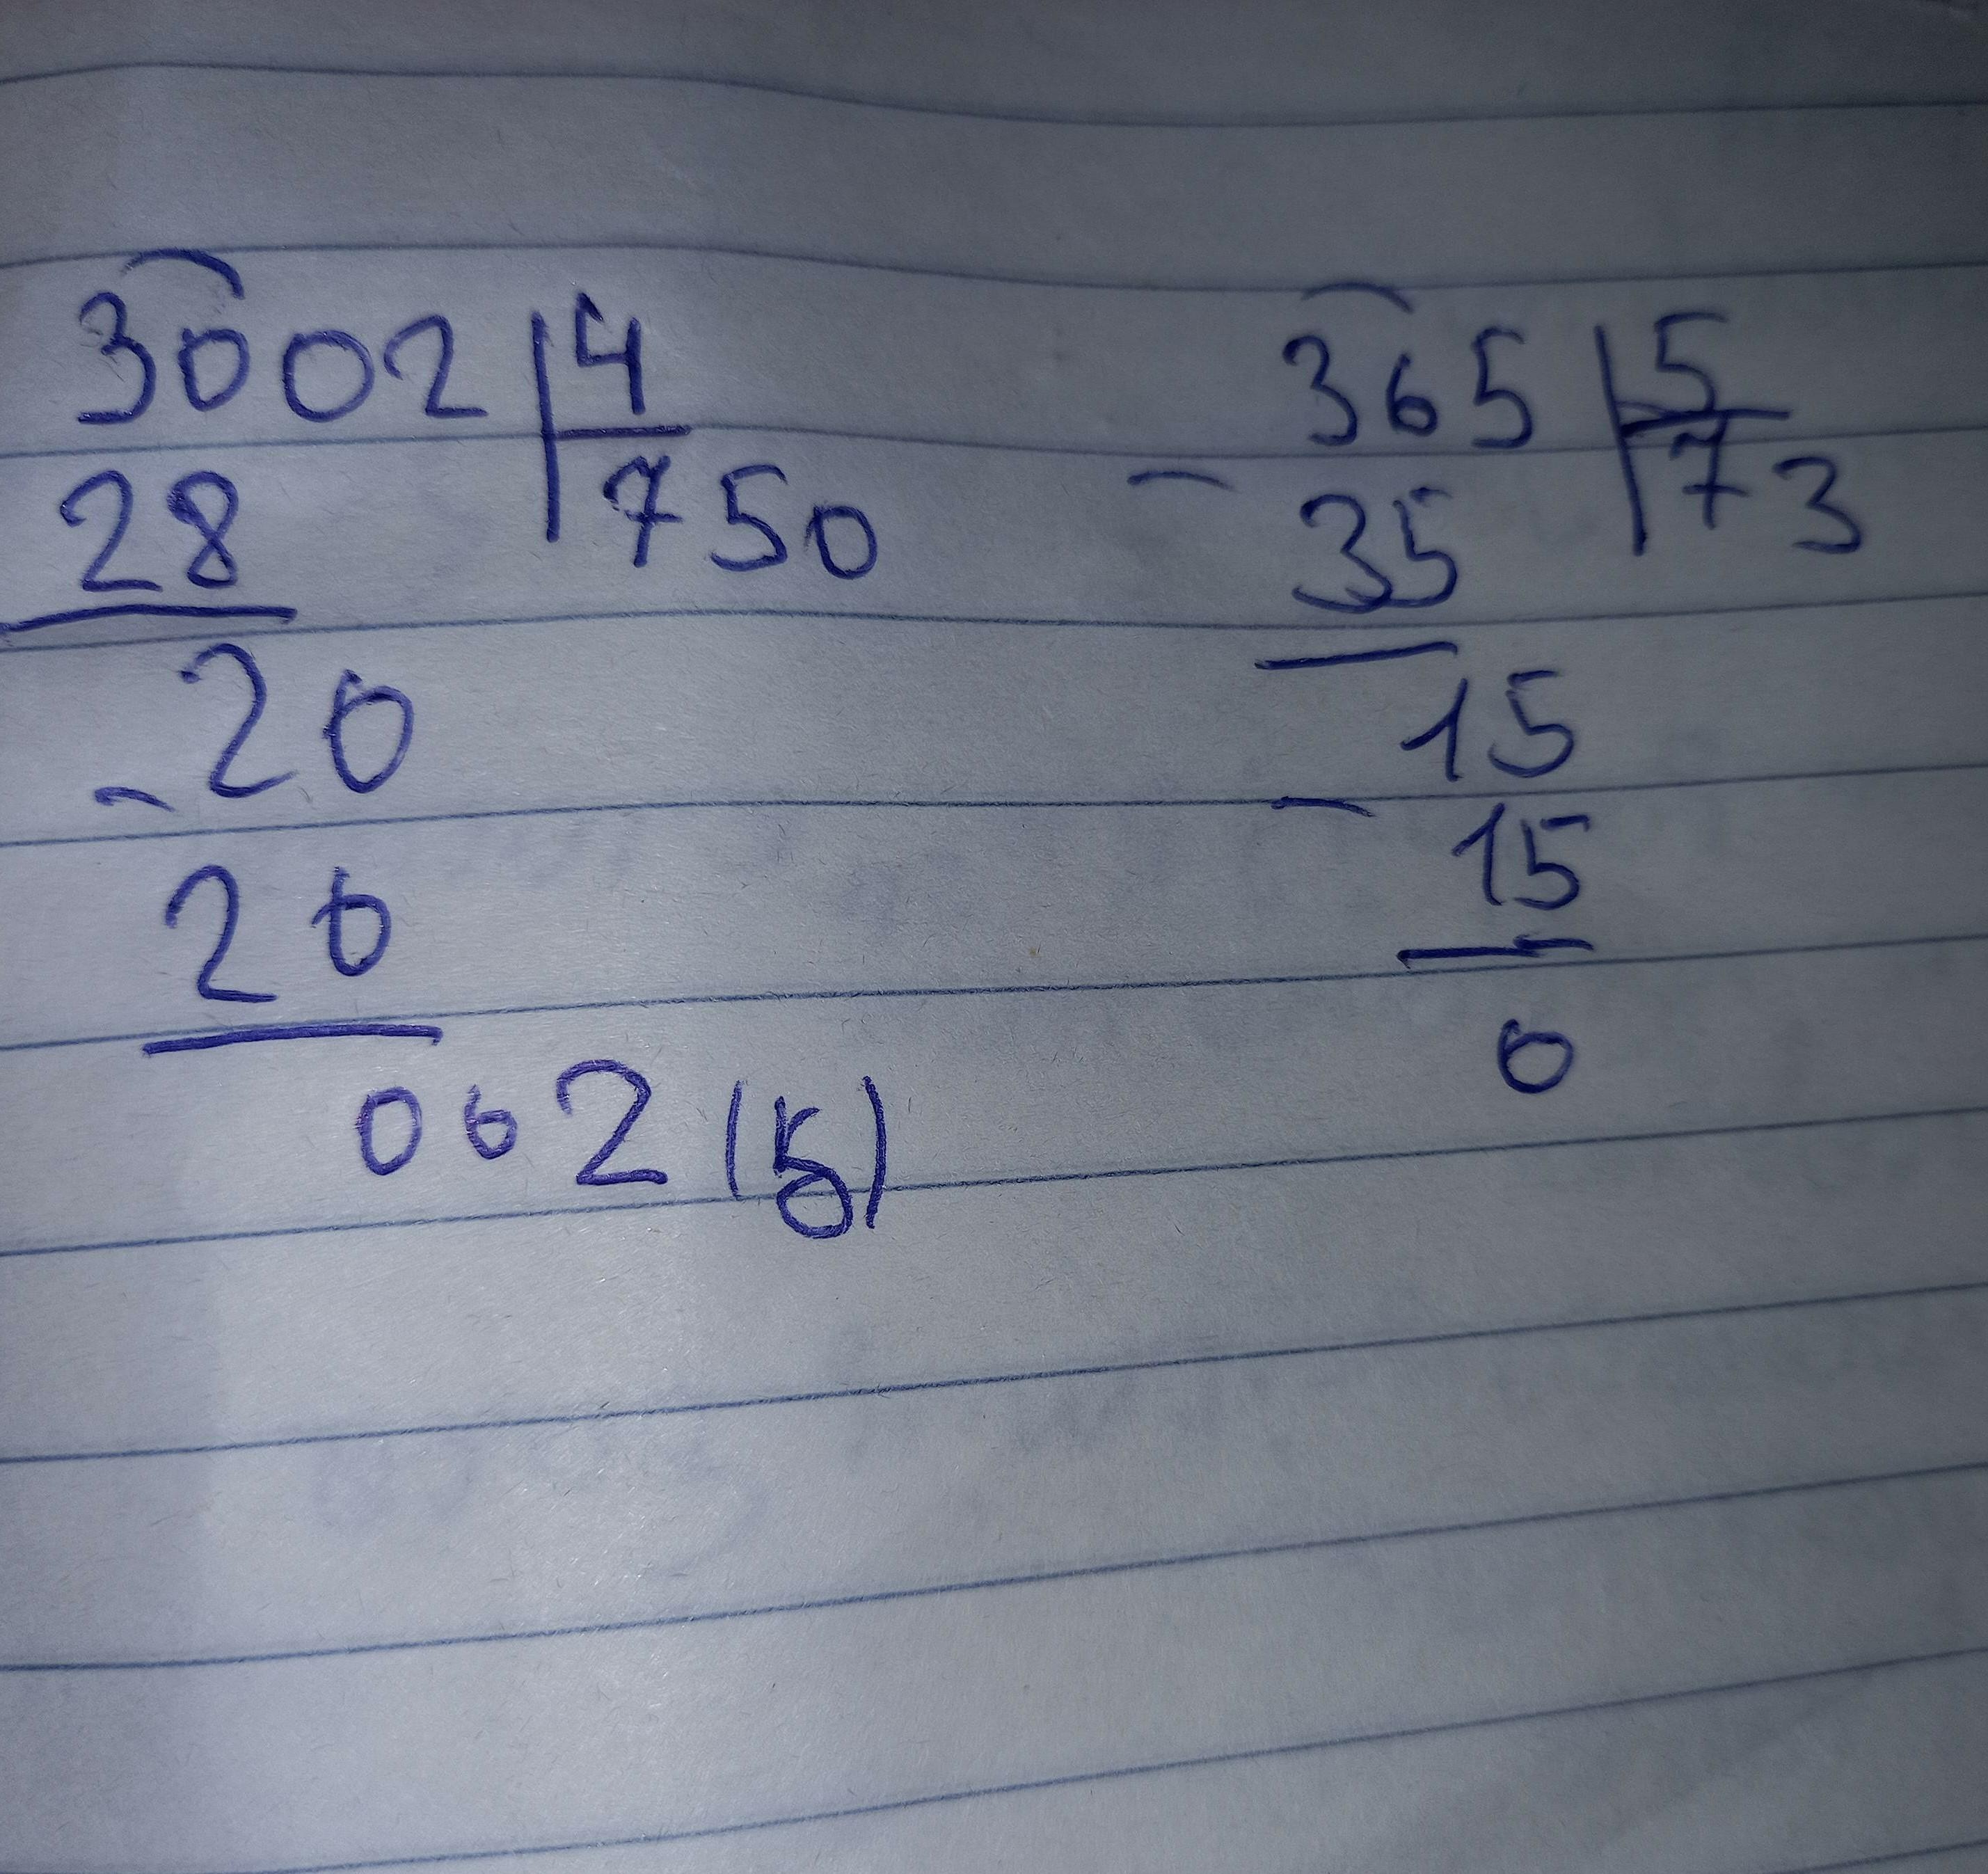 3002 4
28 750
20
- 20
002 (5)
365 5
- 35 73
15
- 15
0